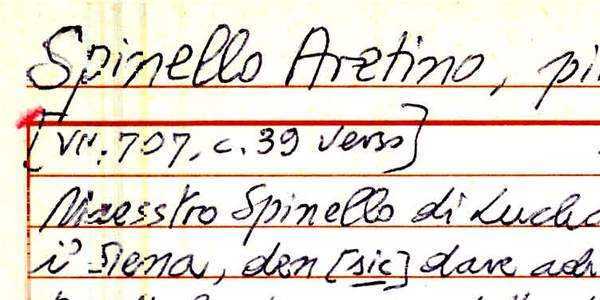 Spinello Aretino, pi
[VII. 707. c. 39 verso]
Maesstro Spinello di Lucha
i Siena, den [sic] dare adi